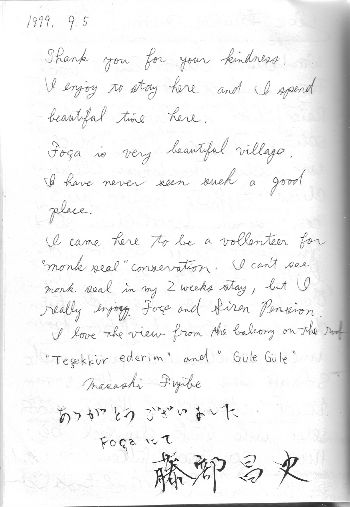 1999. 9.5
Thank you for your kindness.
I enjoy to stay here and I spend
beautiful time here.
Foça is very beautiful village.
I have never seen such a good
place.
I came here to be a vollenteer for
"monk seal" conservation. I can't see
monk seal in my 2 weeks stay, but I
really enjoy Foça and Siren Pension.
I love the view from the balcony on the roof
"Teşekkür ederim" and "Güle Güle"
Masashi Fujibe
ありがとうございました
FOÇA にて
藤部昌史